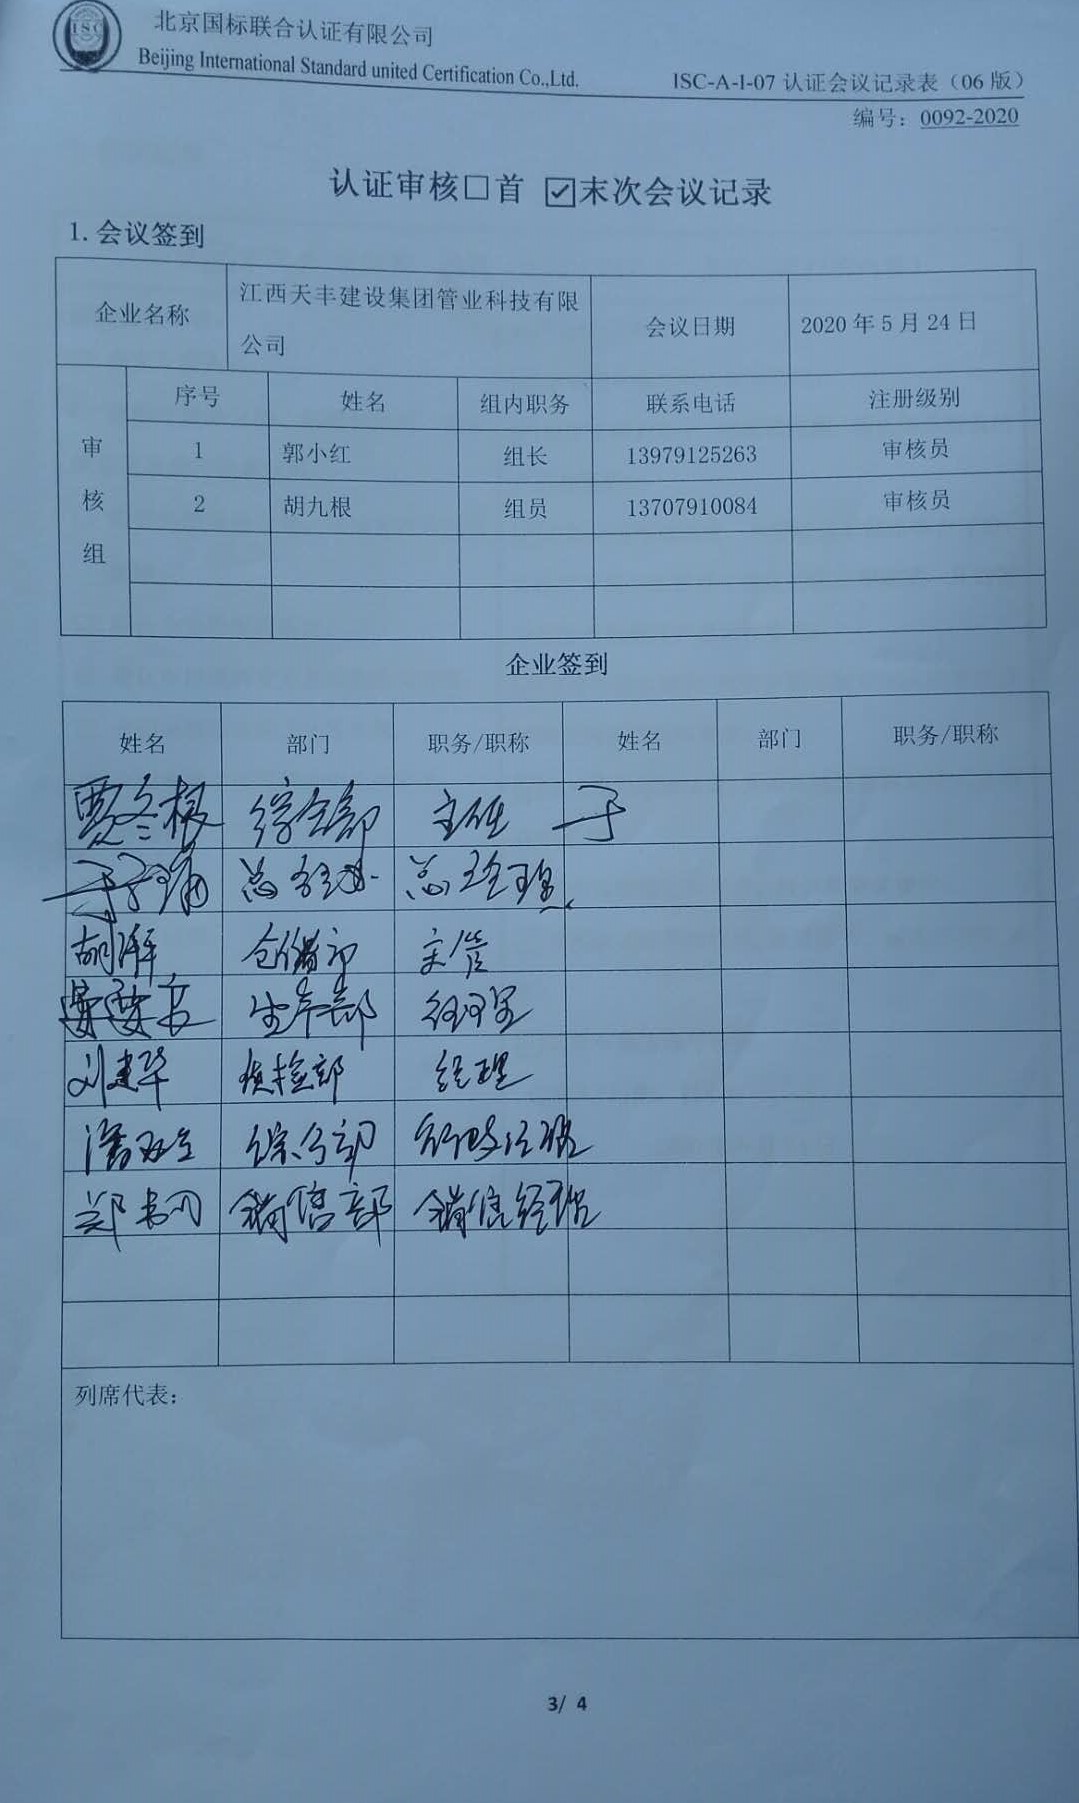 ISC
北京国标联合认证有限公司
Beijing International Standard united Certification Co.,Ltd.
ISC-A-I-07 认证会议记录表（06 版）
编号：0092-2020
认证审核□首 ☑末次会议记录
1. 会议签到
企业名称 江西天丰建设集团管业科技有限公司 会议日期 2020 年 5 月 24 日
审核组
序号 姓名 组内职务 联系电话 注册级别
1 郭小红 组长 13979125263 审核员
2 胡九根 组员 13707910084 审核员
企业签到
姓名 部门 职务/职称 姓名 部门 职务/职称
贾冬根 综合部 主任 于
总经办 总经理
仓储部 主管
生产部 经理
刘建华 质检部 经理
综合部 行政经理
郑 销售部 销售经理
列席代表：
3/ 4